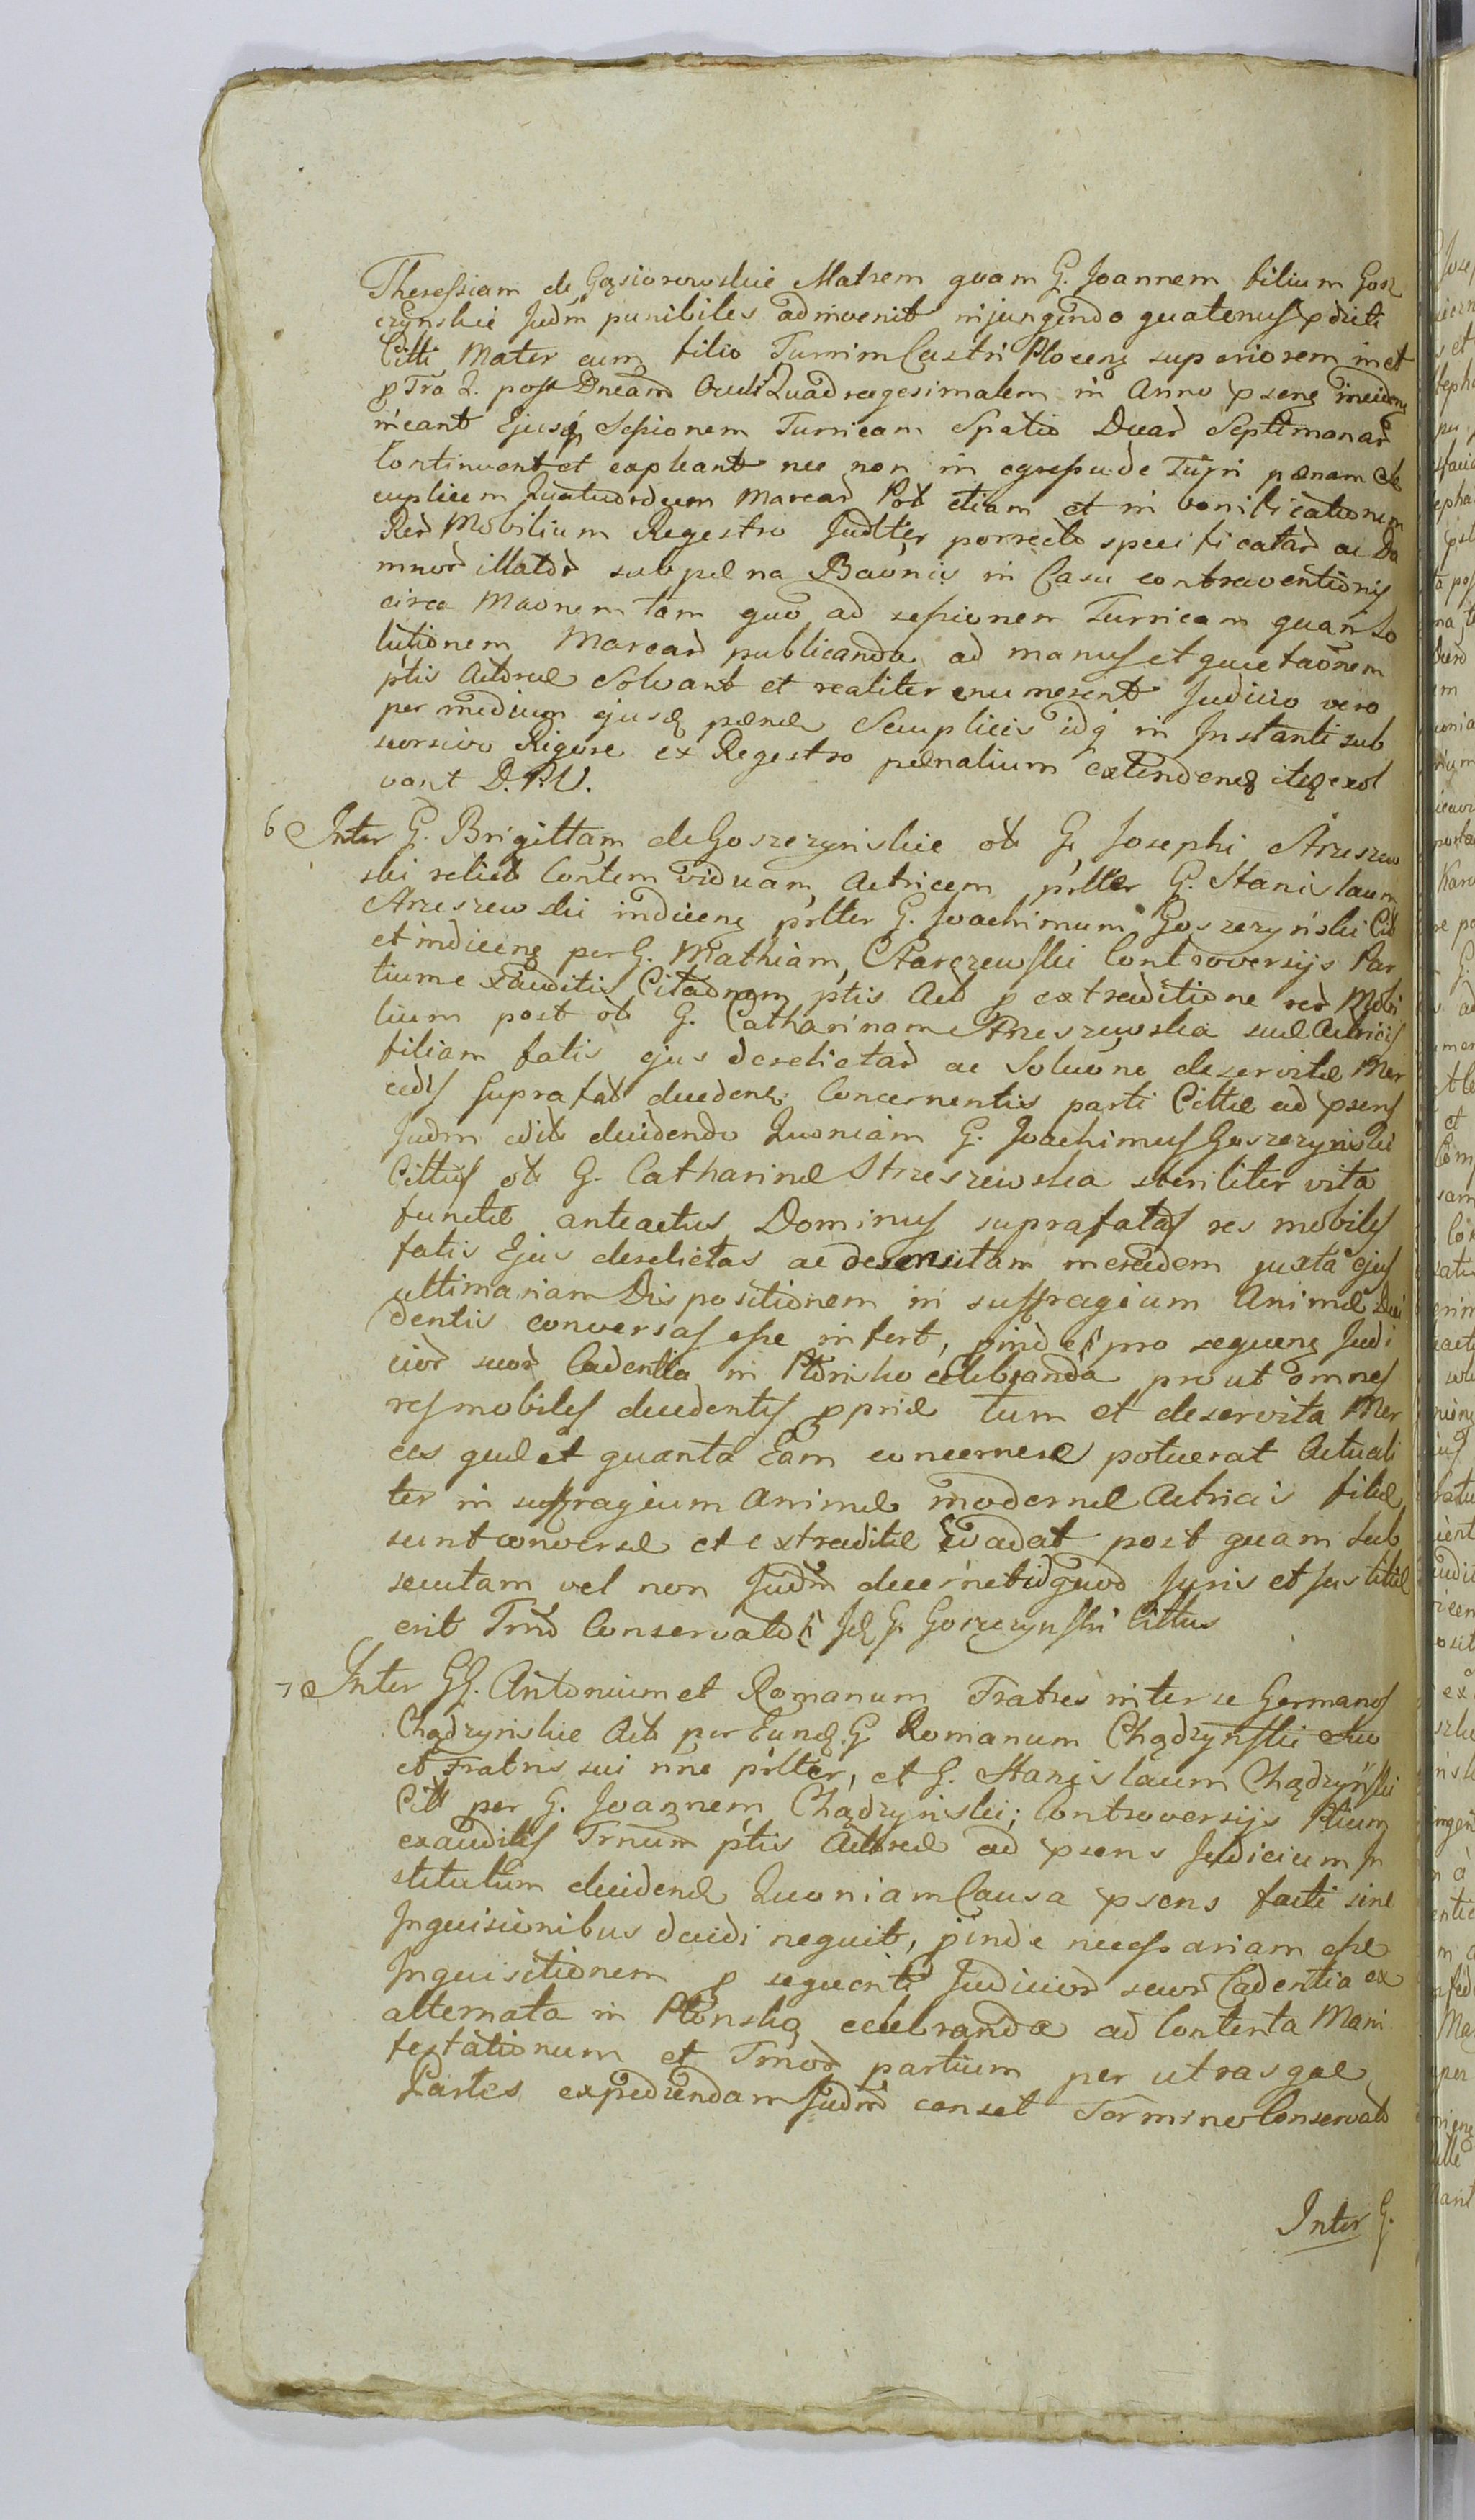 Theressiam de Gąsiorowskie Matrem quam G. Joannem filium Gosz
czynskie Judm punibiles adinvenit injungendo quatenus pdicti
Citti Mater cum filio Turrim Castri Plocens superiorem in et
p Tra 2. post Dncam Oculi Quadragesimalem in Anno psens inciden
ineant Ejusq Sessionem Turricam Spatio Duar Septimanar
Continuent et expleant nec non in egressu de Turri pœnam Se
cuplicem Quatuordecem Marcar Pol etiam et in bonificationem
Rer Mobilium Regestro Judlter porrecto specificatar ac Da
mnor illator sub pœna Baonis in Casu contraventionis
circa Maonem tam quo ad sessionem Turricam quam So
lutionem Marcar publicanda ad manus et quietaonem
ptis Actoreæ Solvant et realiter enumerent Judicio vero
per medium ejusd pœnæ Semplicis idq in Instanti sub
seorsivo Rigore ex Regestro pœnalium extendens itid exol
vant D.P.U.
6 Inter G. Brigittam de Goszczynskie ol G. Josephi Strzeszew
ski relict Contem viduam Actricem pstter G. Stanislaum
Strzeszewski indicens pstter G. Joachimum Goszczyński Cit
et indicens per G. Mathiam Starczewski Controversijs Par
tium exauditis Citaonem ptis Act p extraditione rer Mobi
lium post ol G. Catharinam Strzeszewska suæ Actricis
filiam fatis ejus derelictar ac Soluone deservitæ Mer
cedis suprafat decedens Concernentis parti Cittæ ad psens
Judm edit decidendo Quoniam G. Joachimus Goszczynski
Cittus ol G. Catharinæ Strzeszewska steriliter vita
functæ anteactus Dominus suprafatas res mobiles
fatis Ejus derelictas ac deservitam mercedem juxta ejus
ultimariam Dispositionem in suffragium Animæ Dece
dentis conversas esse infert, pinde pro sequens Judi
cior suor Cadentia in Płonsko celebranda prout omnes
res mobiles decedentis ppriæ tum et deservita Mer
ces quæ et quanta Eam concernere potuerat Actuali
ter in suffragium Animæ modernæ Actricis filiæ
sunt conversæ et extraditæ Evadat post quam Sub
secutam vel non Judm decernet id quod Juris et Justitiæ
erit Trno Conservato Jd G. Goszczynski Cittus
7 Inter GG. Antonium et Romanum Fratres inter se Germanos
Chądzynskie Act per Eund G Romanum Chądzynski Suo
et Fratris sui nne pstter, et G. Stanislaum Chądzyński
Citt per G. Joannem Chądzyński; Controversijs Ptium
exauditis Trnum ptis Actoreæ ad psens Judicium In
stitutum decidendo Quoniam Causa psens facti sine
Inquisicionibus decidi nequit, pinde necessariam esse
Inquisitionem p sequenti Judicior suor Cadentia ex
alternata in Płonsko celebranda ad Contenta Mani
festationum et Trnor partium per utrasque
Partes expediendam Judm censet Termino Conservato
Inter G.